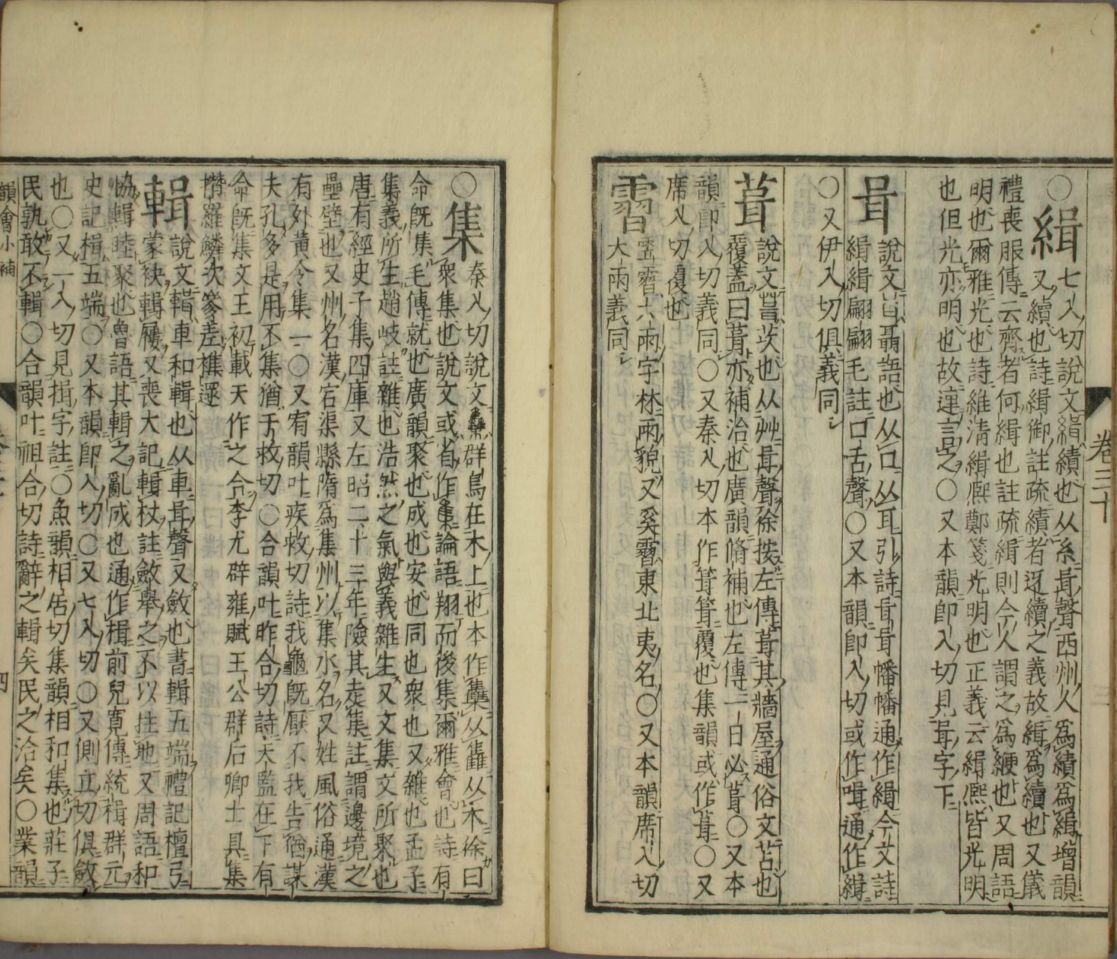 卷三十
三
○緝七入切說文緝績也从糸咠聲西州人為績為緝增韻
又續也詩緝御註疏續者連續之義故緝為續也又儀
禮喪服傳云齊者何緝也註疏緝則今人謂之為緶也又周語
明也爾雅光也詩維清緝熙鄭箋光明也正義云緝熙皆光明
也但光亦明也故連言之○又本韻即入切見咠字下
咠說文咠聶語也从口从耳引詩咠咠幡幡通作緝今文詩
緝緝翩翩毛註口舌聲○又本韻即入切或作喢通作緝
○又伊入切俱義同
葺說文葺茨也从艸咠聲徐按左傳葺其牆屋通俗文苫也
覆蓋曰葺亦補治也廣韻脩補也左傳一日必葺○又本
韻即入切義同○又秦入切本作葺葺覆也集韻或作葺○又
席入切覆也
霫霫霫大雨字林雨貌又奚霫東北夷名○又本韻席入切
大雨義同
○集秦入切說文雧群鳥在木上也本作雧从雥从木徐曰
衆集也說文或省作集論語翔而後集爾雅會也詩有
命旣集毛傳就也廣韻聚也成也安也同也衆也又雜也孟子
集義所生趙岐註雜也浩然之氣與義雜生又文集文所聚也
唐有經史子集四庫又左昭二十三年險其走集註謂邊境之
壘壁也又州名漢宕渠縣隋為集州以集水名又姓風俗通漢
有外黃令集一○又宥韻叶疾救切詩我龜旣厭不我告猶謀
夫孔多是用不集猶于救切○合韻叶昨合切詩天監在下有
命旣集文王初載天作之合李尤辟雍賦王公群后卿士具集
攢羅鱗次參差樵遝
輯說文輯車和輯也从車咠聲又斂也書輯五端禮記檀弓
蒙袂輯屨又喪大記輯杖註斂舉之不以拄地又周語和
協輯睦聚也魯語其輯之亂成也通作楫前兒寬傳統楫群元
史記楫五端○又本韻即入切○又七入切○又側立切俱斂
也○又一入切見揖字註○魚韻相居切集韻相和集也莊子
民孰敢不輯○合韻叶祖合切詩辭之輯矣民之洽矣○業韻
韻會小補
四